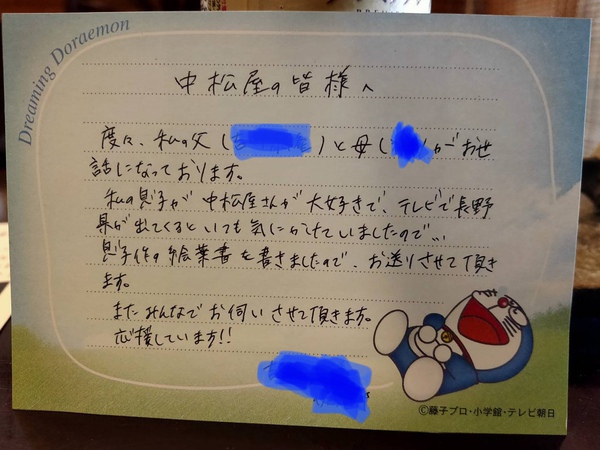 Dreaming Doraemon
中松屋の皆様へ
度々、私の父(
)と母(
)がお世
話になっております。
私の息子が中松屋さんが大好きで、テレビで長野
県が出てくるといつも気にかけていましたので…
息子作の絵葉書を書きましたので、お送りさせて頂き
ます。
またみんなでお伺いさせて頂きます。
応援しています!!
©藤子プロ・小学館・テレビ朝日